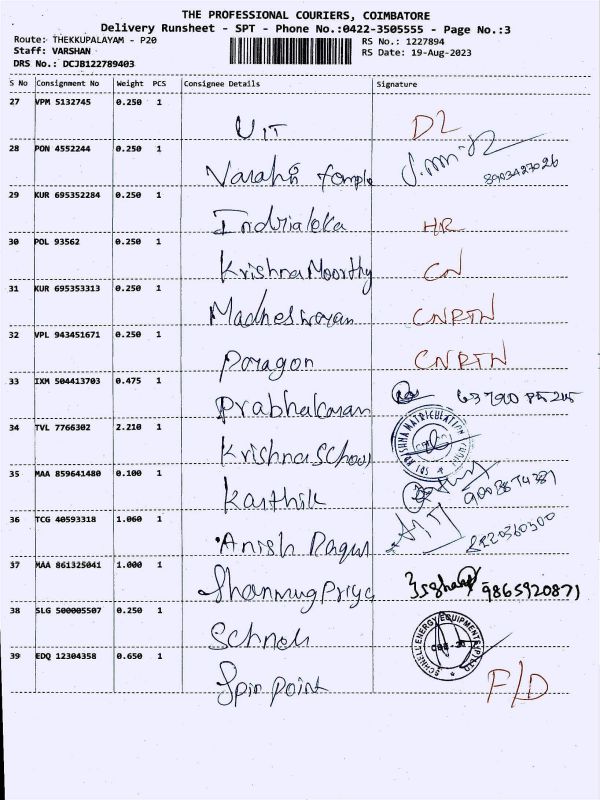 THE PROFESSIONAL COURIERS, COIMBATORE
Delivery Runsheet - SPT - Phone No.:0422-3505555 - Page No.:3
Route: THEKKUPALAYAM - P20
RS No.: 1227894
Staff: VARSHAN
RS Date: 19-Aug-2023
DRS No.: DCJB122789403
S No Consignment No Weight PCS Consignee Details Signature
27 VPM 5132745 0.250 1
UIT D2
28 PON 4552244 0.250 1
Varahi Temple 8903427026
29 KUR 695352284 0.250 1
Indrialoka HR
30 POL 93562 0.250 1
Krishna Moorthy CN
31 KUR 695353313 0.250 1
Madheswaran CNRTN
32 VPL 943451671 0.250 1
Paragon CNRTN
33 IXM 504413703 0.475 1
Prabhakaran
34 TVL 7766302 2.210 1
Krishna School KRISHNA MATRICULATION
35 MAA 859641480 0.100 1
Karthik
36 TCG 40593318 1.060 1
Anish Ragu 8220360300
37 MAA 861325041 1.000 1
Shanmug Priya 9865920871
38 SLG 500005507 0.250 1
Schnell SCHNELL ENERGY EQUIPMENTS (P) LTD
39 EDQ 12304358 0.650 1
Spin point F/D